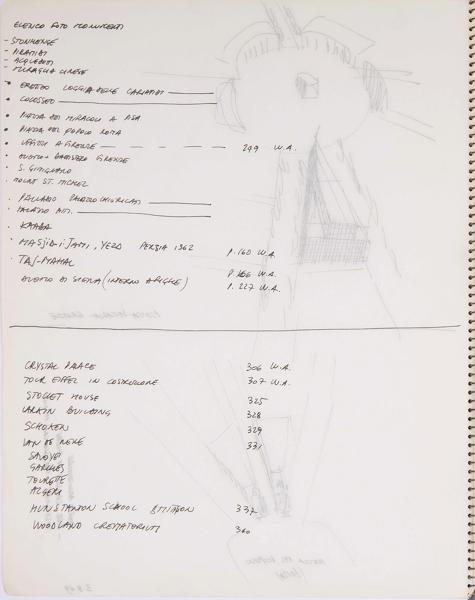 ELENCO FOTO MONUMENTI
- STONHENGE
- PIRAMIDI
- ACQUEDOTTI
- MURAGLIA CINESE
• ERETTEO LOGGIA DELLE CARIATIDI
• COLOSSEO
• PIAZZA DEI MIRACOLI A PISA
• PIAZZA DEL POPOLO ROMA
• UFFIZI A FIRENZE 299 W.A.
• DUOMO + BATTISTERO FIRENZE
• S. GIMIGNANO
• MOUNT ST. MICHEL
• PALLADIO PALAZZO CHIERICATI
• PALAZZO
• KAABA
• MASJID-I-JAMI, YEZD PERSIA 1362 P. 160 W.A.
• TAJ-MAHAL P. 166 W.A.
DUOMO DI SIENA (INTERNO A RIGHE) P. 227 W.A.
CRYSTAL PALACE 306 W.A.
TOUR EIFFEL IN COSTRUZIONE 307 W.A.
STOCLET HOUSE 325
LARKIN BUILDING 328
SCHOKEN 329
VAN DE NELLE 331
SAVOYE
GARCHES
ALGERI
HUNSTANTON SCHOOL SMITHSON 337
WOODLAND CREMATORIUM 360